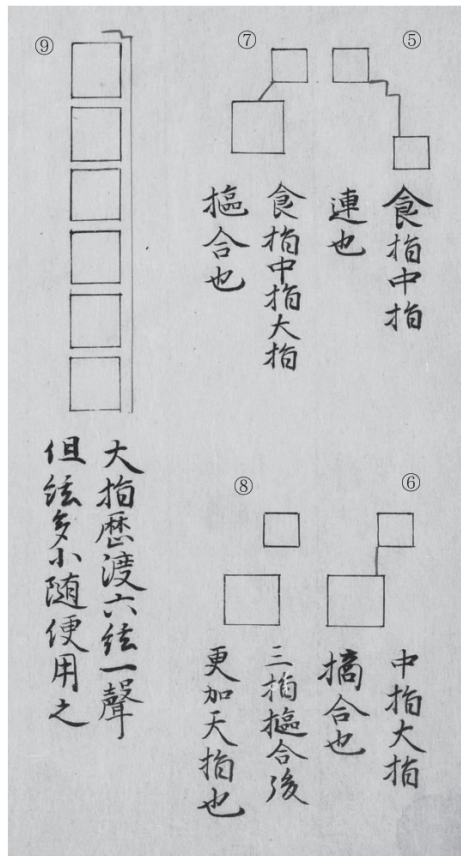 ⑤
食指中指
連也
⑥
中指大指
摘合也
⑦
食指中指大指
摳合也
⑧
三指摳合後
更加天指也
⑨
大指歴渡六絃一聲
但絃多小随便用之